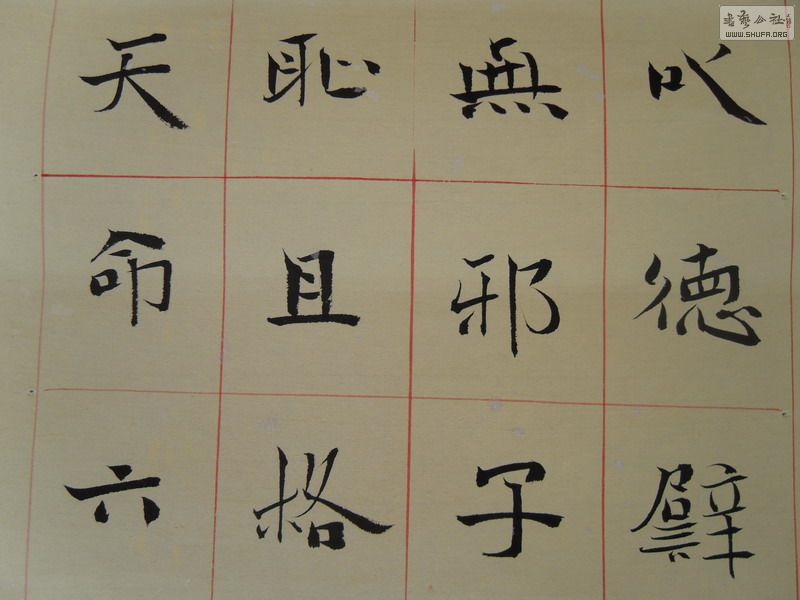 以德譬
無邪子
恥且格
天命六
書藝公社
WWW.SHUFA.ORG